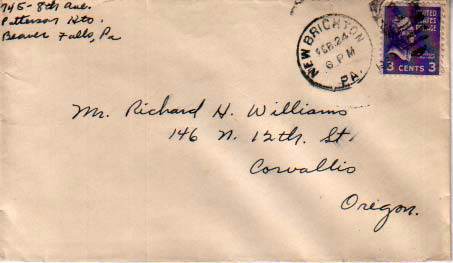 745-8th Ave.
Patterson Hts.
Beaver Falls, Pa
NEW BRIGHTON
FEB 24
6 PM
PA.
UNITED STATES
POSTAGE
3 CENTS 3
Mr. Richard H. Williams
146 N. 12th. St.
Corvallis
Oregon.